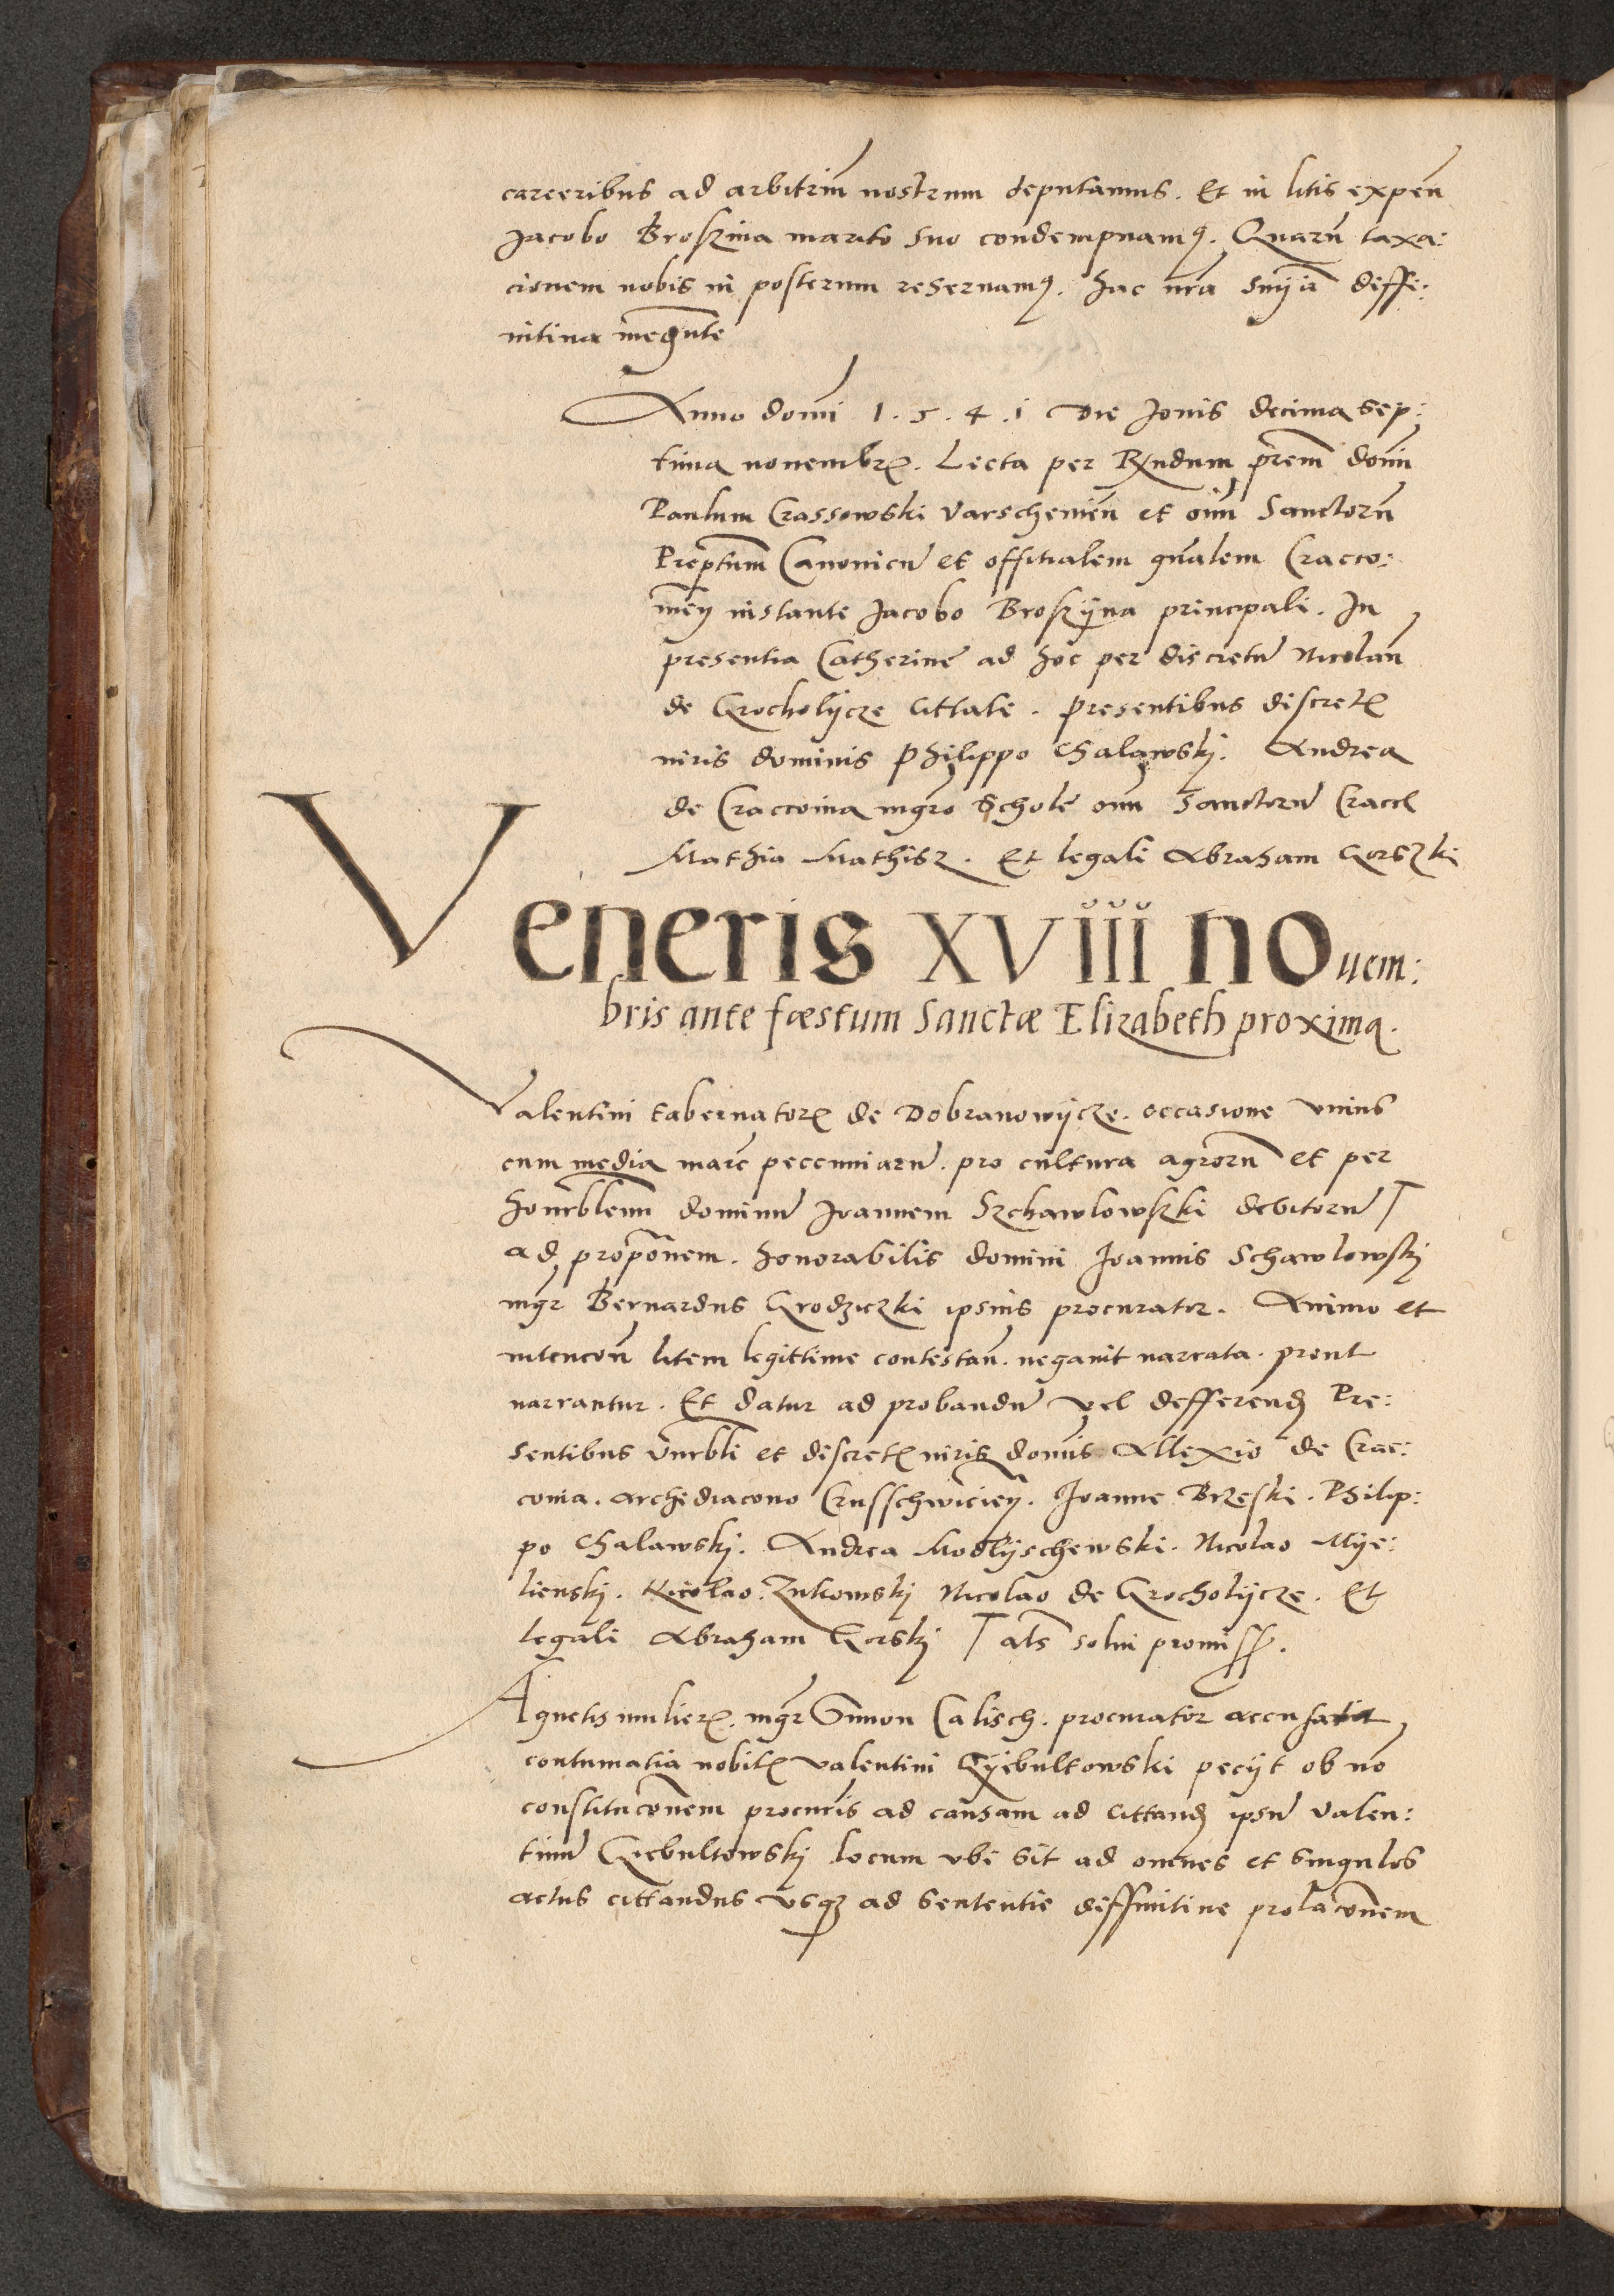 carceribus ad arbitriũ nostrum deputamus. Et in litis expeñ
Jacobo Broskzina marito suo condempnamꝰ. Quarũ taxa:
cionem nobis in posterum reseruamꝰ. hac nr̃a sñyia diffi:
nitiua mediañte
Anno domĩ 1.5.4.1 Die Jouis decima sep:
tima nouembrꝭ. Lecta per Rx̃ndum pr̃em doñm
Paulum Crassowski Varschemieñ et oĩm Sanctorũ
Pr̃eptum Canonicũ et offitialem gñalem Cracco:
uieñ instante Jacobo Broskyna principali. In
presentia Catherine ad hoc per discretũ Nicolaũ
de Grocholijcze cittate. Presentibus discretꝭ
uiris dominis Philippo Chalawskj. Andrea
de Craccouia mgr̃o Schole oĩm Sanctorũ Cracꝭ
Mathia Mathisz. Et legali Abraham Gorszki
Veneris XVIII nouem:
bris ante fæstum Sanctæ Elizabeth proxima.
Valentini tabernatorꝭ de Dobranowijcze. occasione vnius
cum media marc̃ pecuniarũ. pro cultura agrorũ et per
honr̃blem dominũ Joannem Szchawlowszki debitorũ ⸢
ad propõnem. honorabilis domini Joannis Schawlowskj
mgr̃ Bernardus Grodziczki ipsius procurator. Animo et
intencoñ litem legittime contestañ. negauit narrata. prout
narrantur. Et datur ad probandũ vel defferendꝭ Pre:
sentibus vñrbli et discretꝭ uiris domĩs Allexio de Crac:
couia. archidiacono Crusschwicieñ. Joanne Brzeski. Philip:
po Chalawskj. Andrea Modlijschewski. Nicolao Mije:
lienskj. Nicolao Zukowskj Nicolao de Grocholijcze. Et
legali Abraham Gorskj ⸢ als̃ solui promiss̃.
Agnetis mulierꝭ. mgr̃ Simon Calisch. procurator accusauit
contumatia nobilꝭ Valentini Gyebultowski pecijt ob nõ
constitucõnem procuris̃ ad causam ad cittandꝭ ipsũ Valen:
tinũ Giebultowskj locum vbi sit ad omnes et singulos
actus cittandus vsqꝫ ad sententie diffinitiue prolacõnem